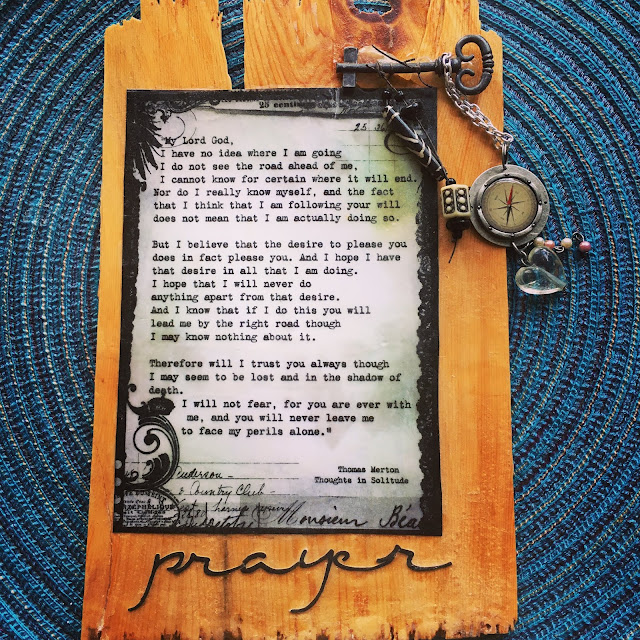 25 centi
25
My Lord God,
I have no idea where I am going
I do not see the road ahead of me.
I cannot know for certain where it will end.
Nor do I really know myself, and the fact
that I think that I am following your will
does not mean that I am actually doing so.
But I believe that the desire to please you
does in fact please you. And I hope I have
that desire in all that I am doing.
I hope that I will never do
anything apart from that desire.
And I know that if I do this you will
lead me by the right road though
I may know nothing about it.
Therefore will I trust you always though
I may seem to be lost and in the shadow of
death.
I will not fear, for you are ever with
me, and you will never leave me
to face my perils alone."
Thomas Merton
Thoughts in Solitude
Country Club
Monsieur Béa
prayer